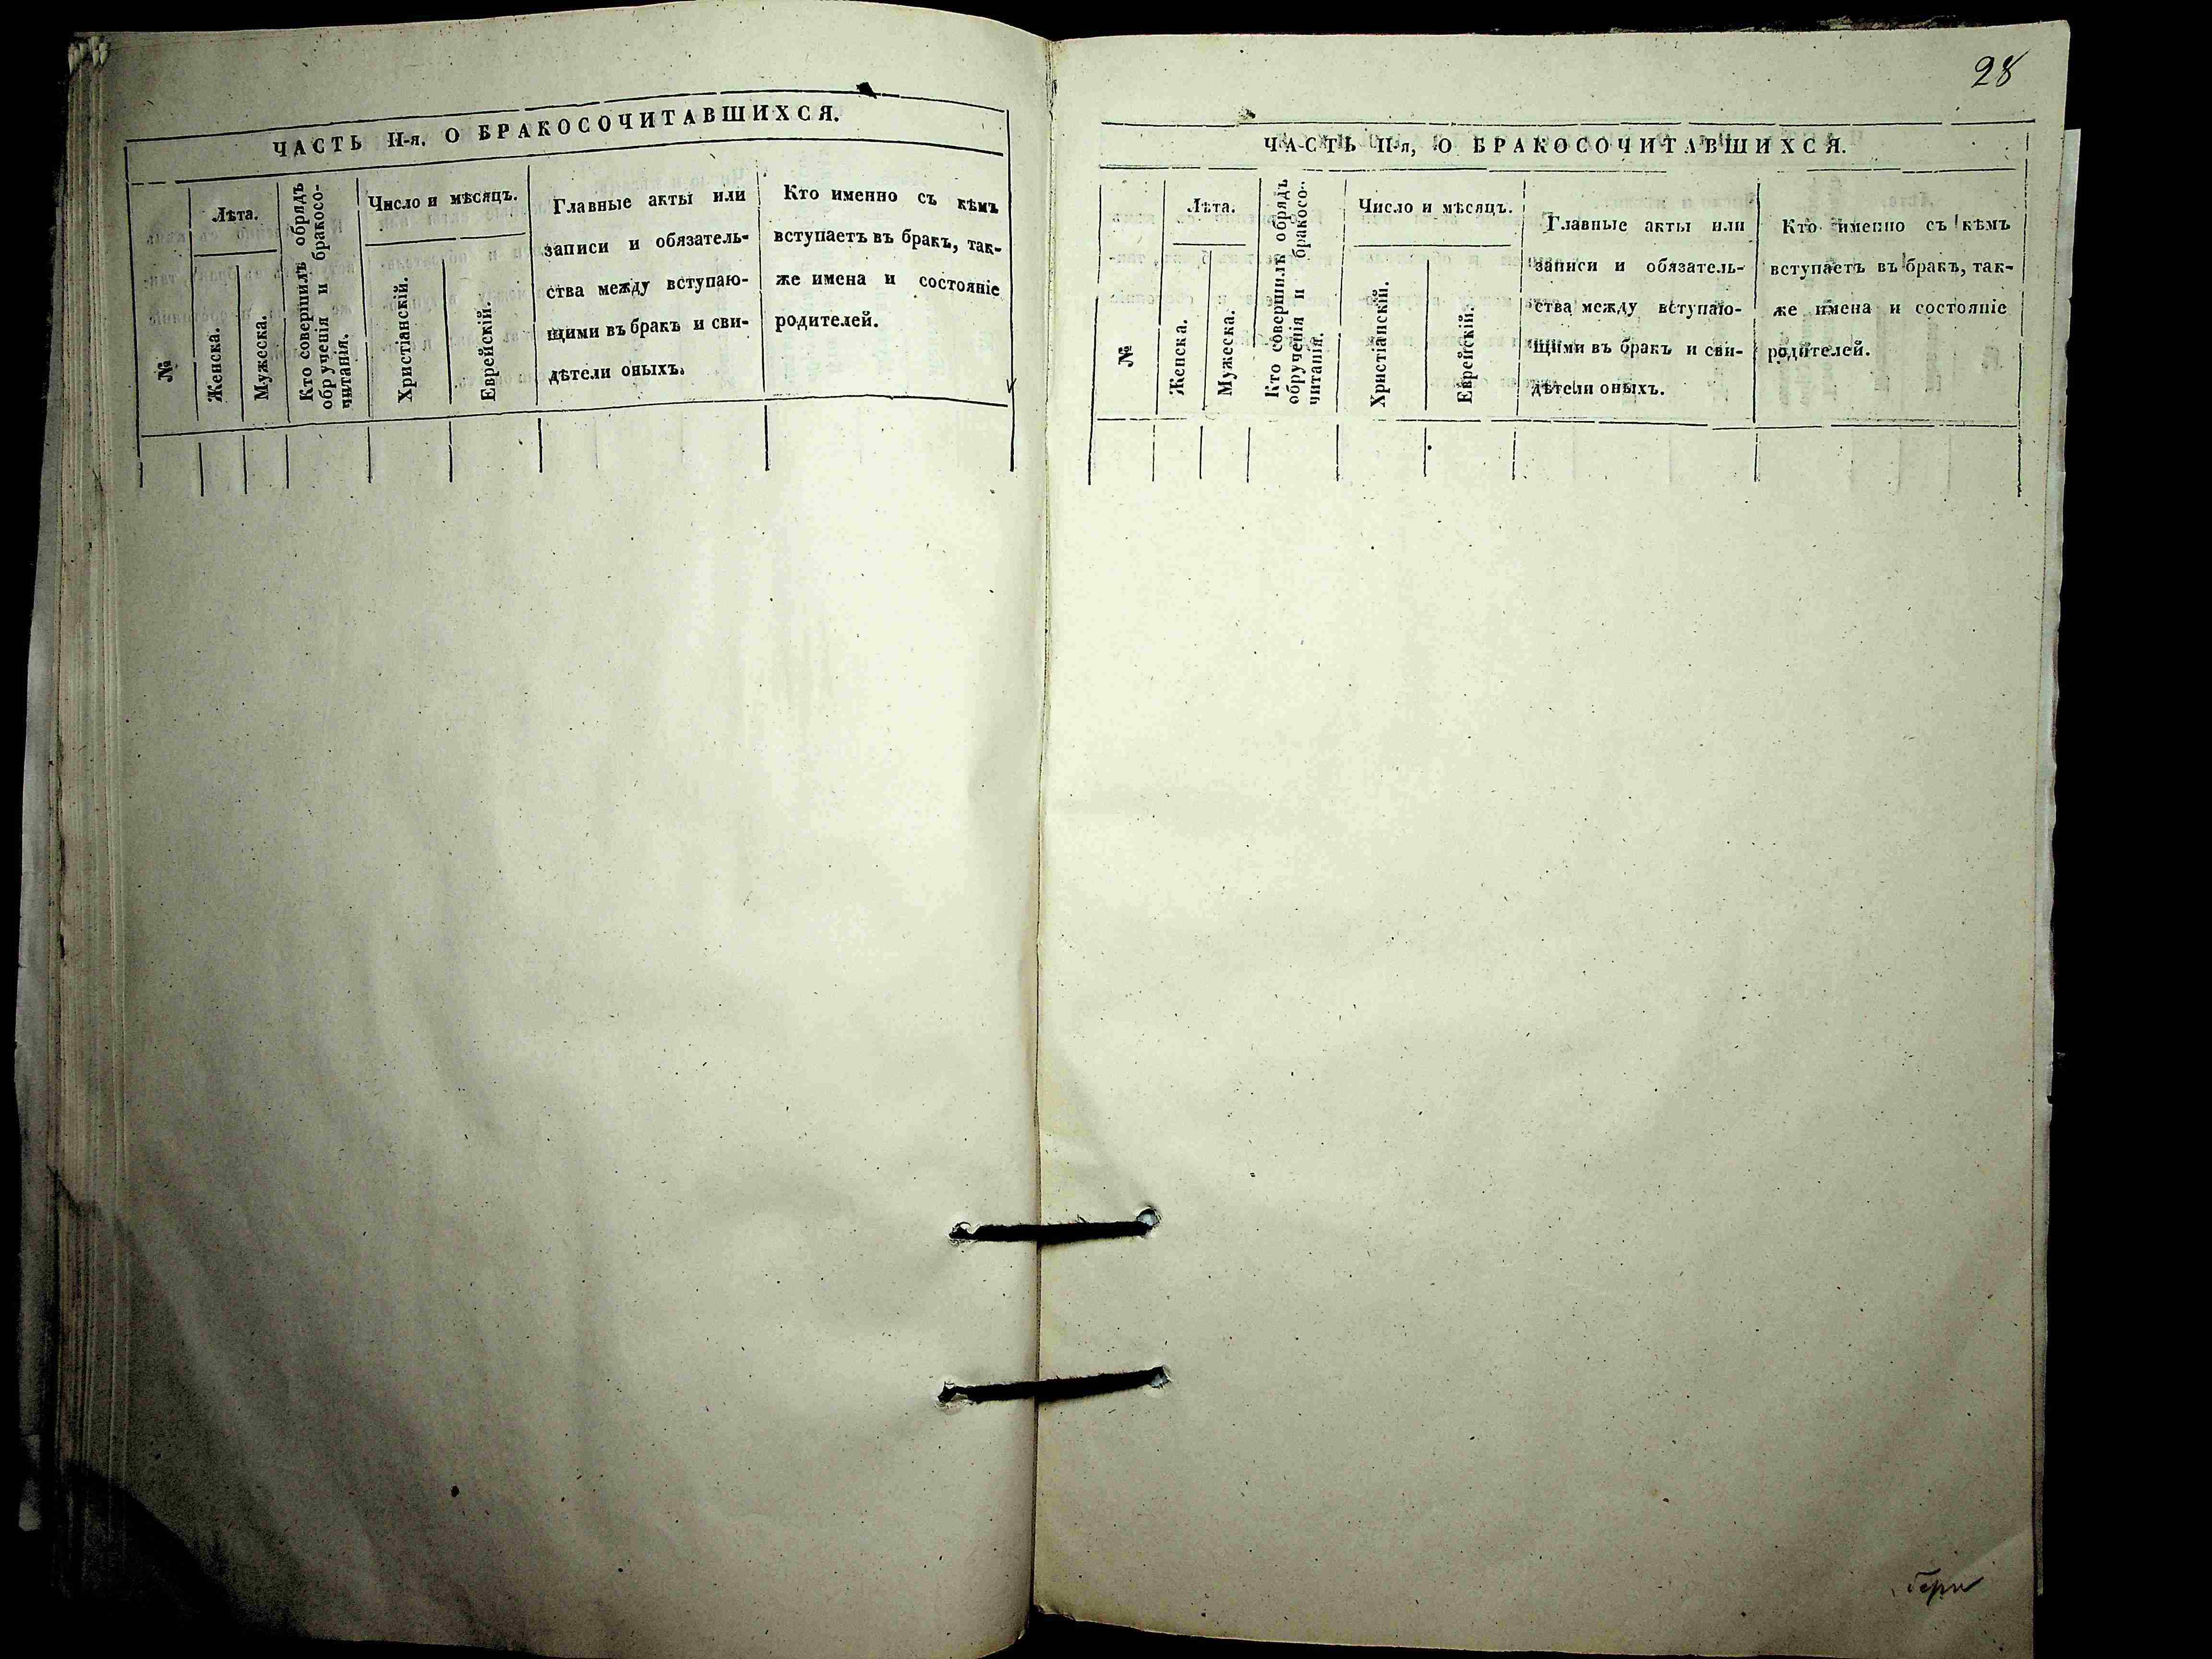 ЧАСТЬ II-я. О БРАКОСОЧИТАВШИХСЯ.
№
Лѣта.
Женска.
Мужеска.
Кто совершилъ обрядъ
обрученія и бракосо-
читанія.
Число и мѣсяцъ.
Христіанскій.
Еврейскій.
Главные акты или
записи и обязатель-
ства между вступаю-
щими въ бракъ и сви-
дѣтели оныхъ.
Кто именно съ кѣмъ
вступаетъ въ бракъ, так-
же имена и состояніе
родителей.
28
ЧАСТЬ II-я, О БРАКОСОЧИТАВШИХСЯ.
№
Лѣта.
Женска.
Мужеска.
Кто совершилъ обрядъ
обрученія и бракосо-
читанія.
Число и мѣсяцъ.
Христіанскій.
Еврейскій.
Главные акты или
записи и обязатель-
ства между вступаю-
щими въ бракъ и сви-
дѣтели оныхъ.
Кто именно съ кѣмъ
вступаетъ въ бракъ, так-
же имена и состояніе
родителей.